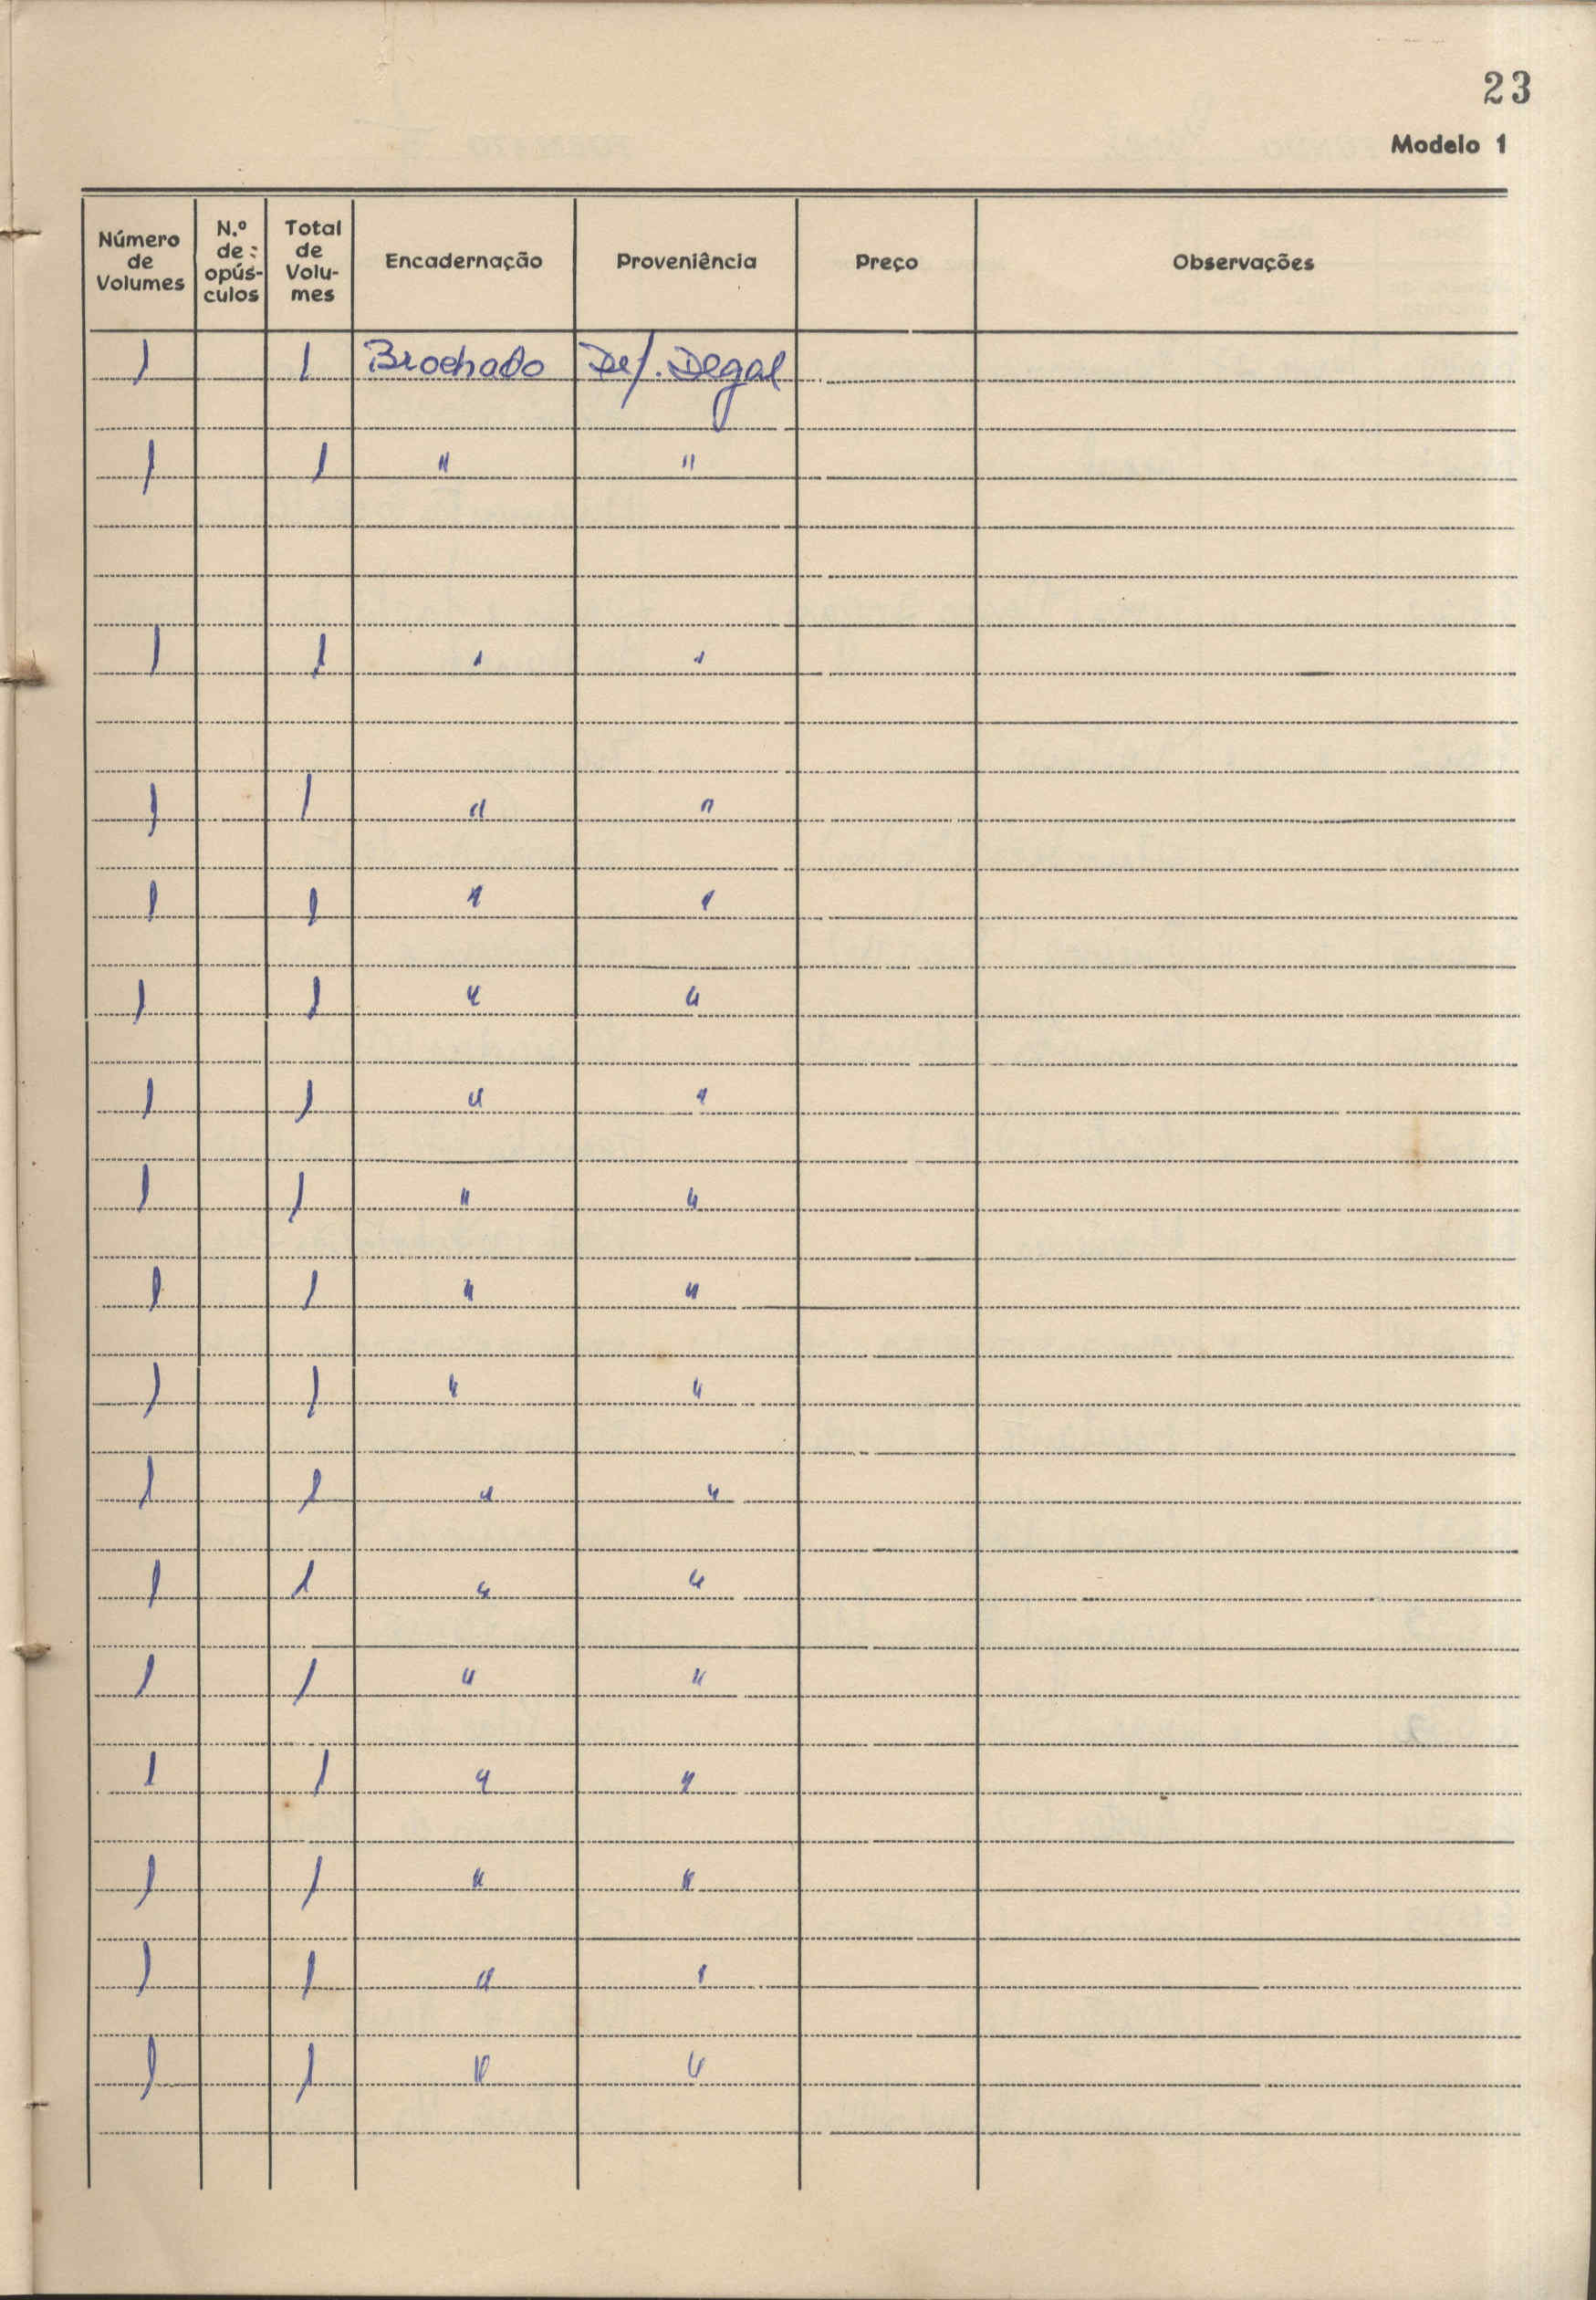 23
Modelo 1
Número de Volumes N.º de opús- culos Total de Volu- mes Encadernação Proveniência Preço Observações
1 1 Brochado Def. Degal
1 1 " "
1 1 " "
1 1 " "
1 1 " "
1 1 " "
1 1 " "
1 1 " "
1 1 " "
1 1 " "
1 1 " "
1 1 " "
1 1 " "
1 1 " "
1 1 " "
1 1 " "
1 1 " "